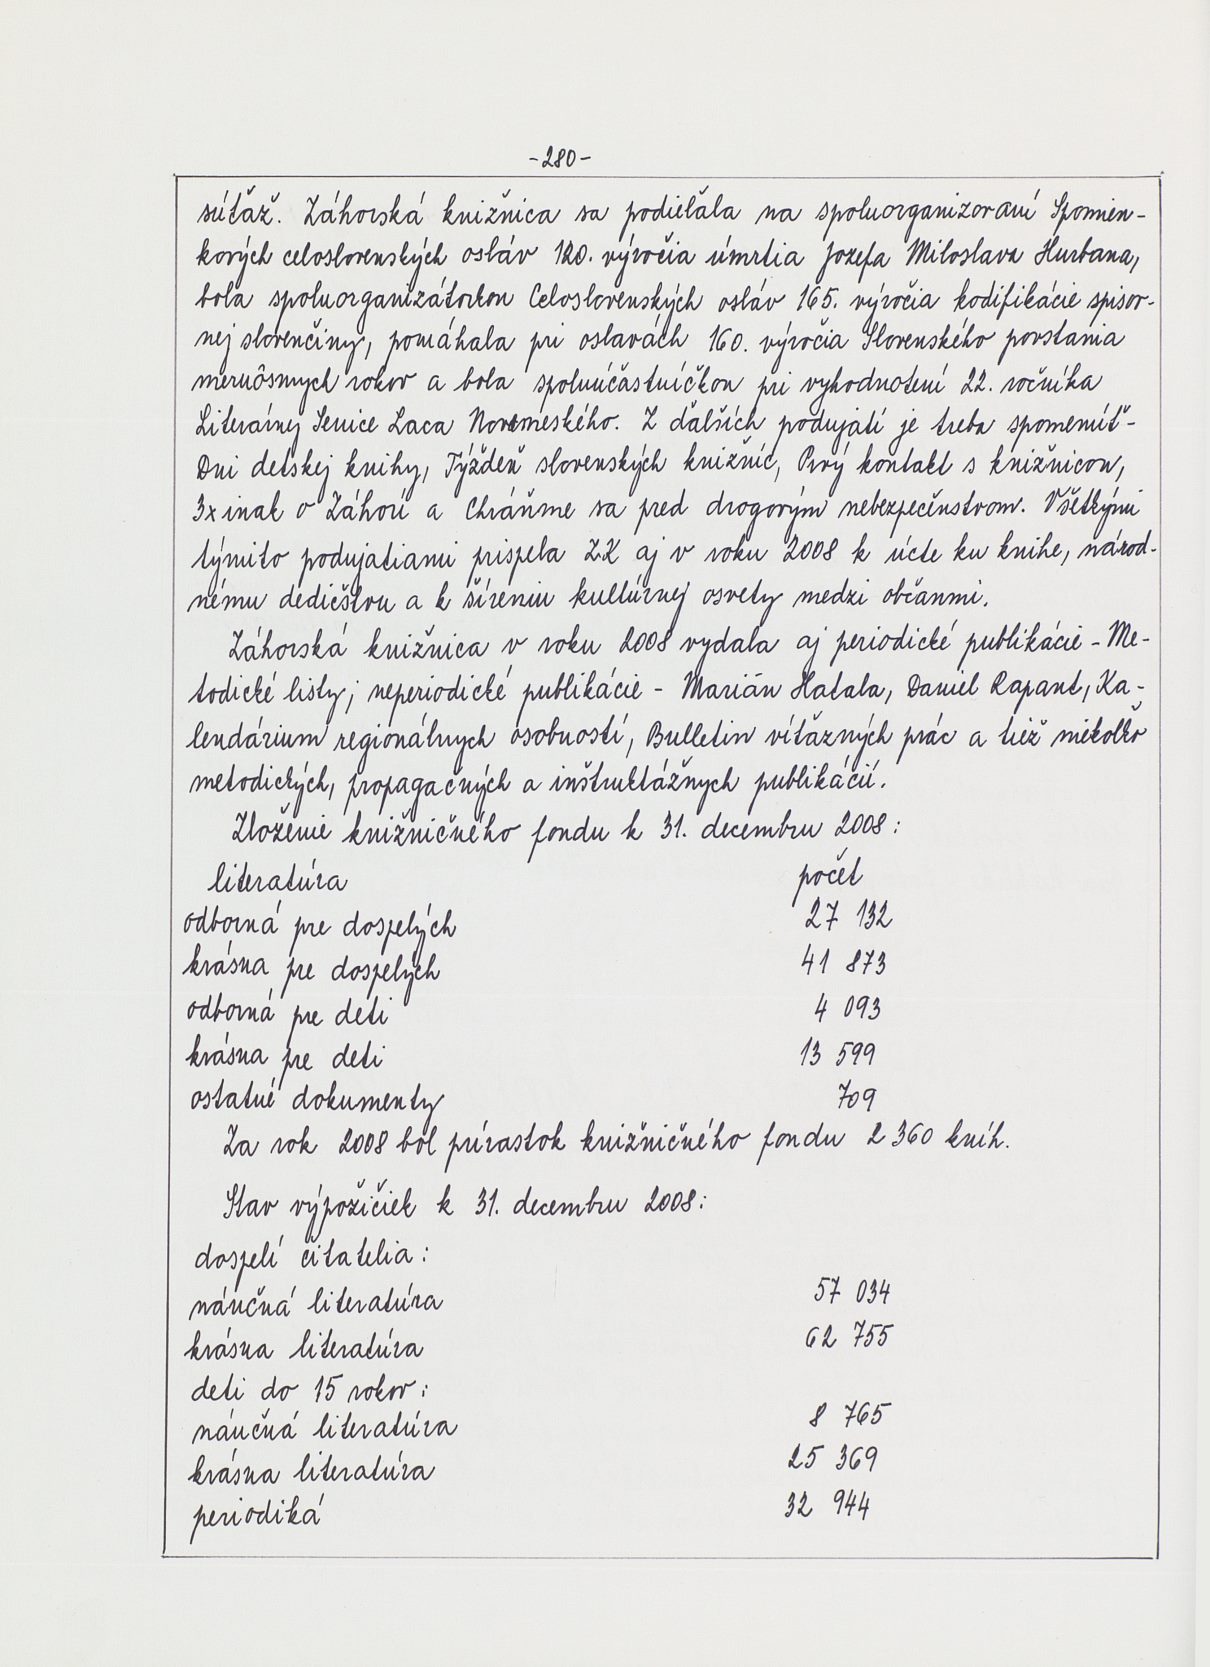 -280-
súťaž. Záhorská knižnica sa podieľala na spoluorganizovaní Spomien-
kových celoslovenských osláv 120. výročia úmrtia Jozefa Miloslava Hurbana,
bola spoluorganizátorkou Celoslovenských osláv 165. výročia kodifikácie spisov-
nej slovenčiny, pomáhala pri oslavách 160. výročia Slovenského povstania
meruôsmych rokov a bola spoluúčastníčkou pri vyhodnotení 22. ročníka
Literárnej Senice Laca Novomeského. Z ďalších podujatí je treba spomenúť-
Dni detskej knihy, Týždeň slovenských knižníc, Prvý kontakt s knižnicou,
3x inak o Záhorí a Chráňme sa pred drogovým nebezpečenstvom. Všetkými
týmito podujatiami prispela ZK aj v roku 2008 k úcte ku knihe, národ-
nému dedičstvu a k šíreniu kultúrnej osvety medzi občanmi.
Záhorská knižnica v roku 2008 vydala aj periodické publikácie - Me-
todické listy; neperiodické publikácie - Marián Hatala, Daniel Rapant, Ka-
lendárium regionálnych osobností, Bulletin víťazných prác a tiež niekoľko
metodických, propagačných a inštruktážnych publikácií.
Zloženie knižničného fondu k 31. decembru 2008:
literatúra počet
odborná pre dospelých 27 132
krásna pre dospelých 41 873
odborná pre deti 4 093
krásna pre deti 13 599
ostatné dokumenty 709
Za rok 2008 bol prírastok knižničného fondu 2 360 kníh.
Stav výpožičiek k 31. decembru 2008:
dospelí čitatelia:
náučná literatúra 57 034
krásna literatúra 62 755
deti do 15 rokov:
náučná literatúra 8 765
krásna literatúra 25 369
periodiká 32 944